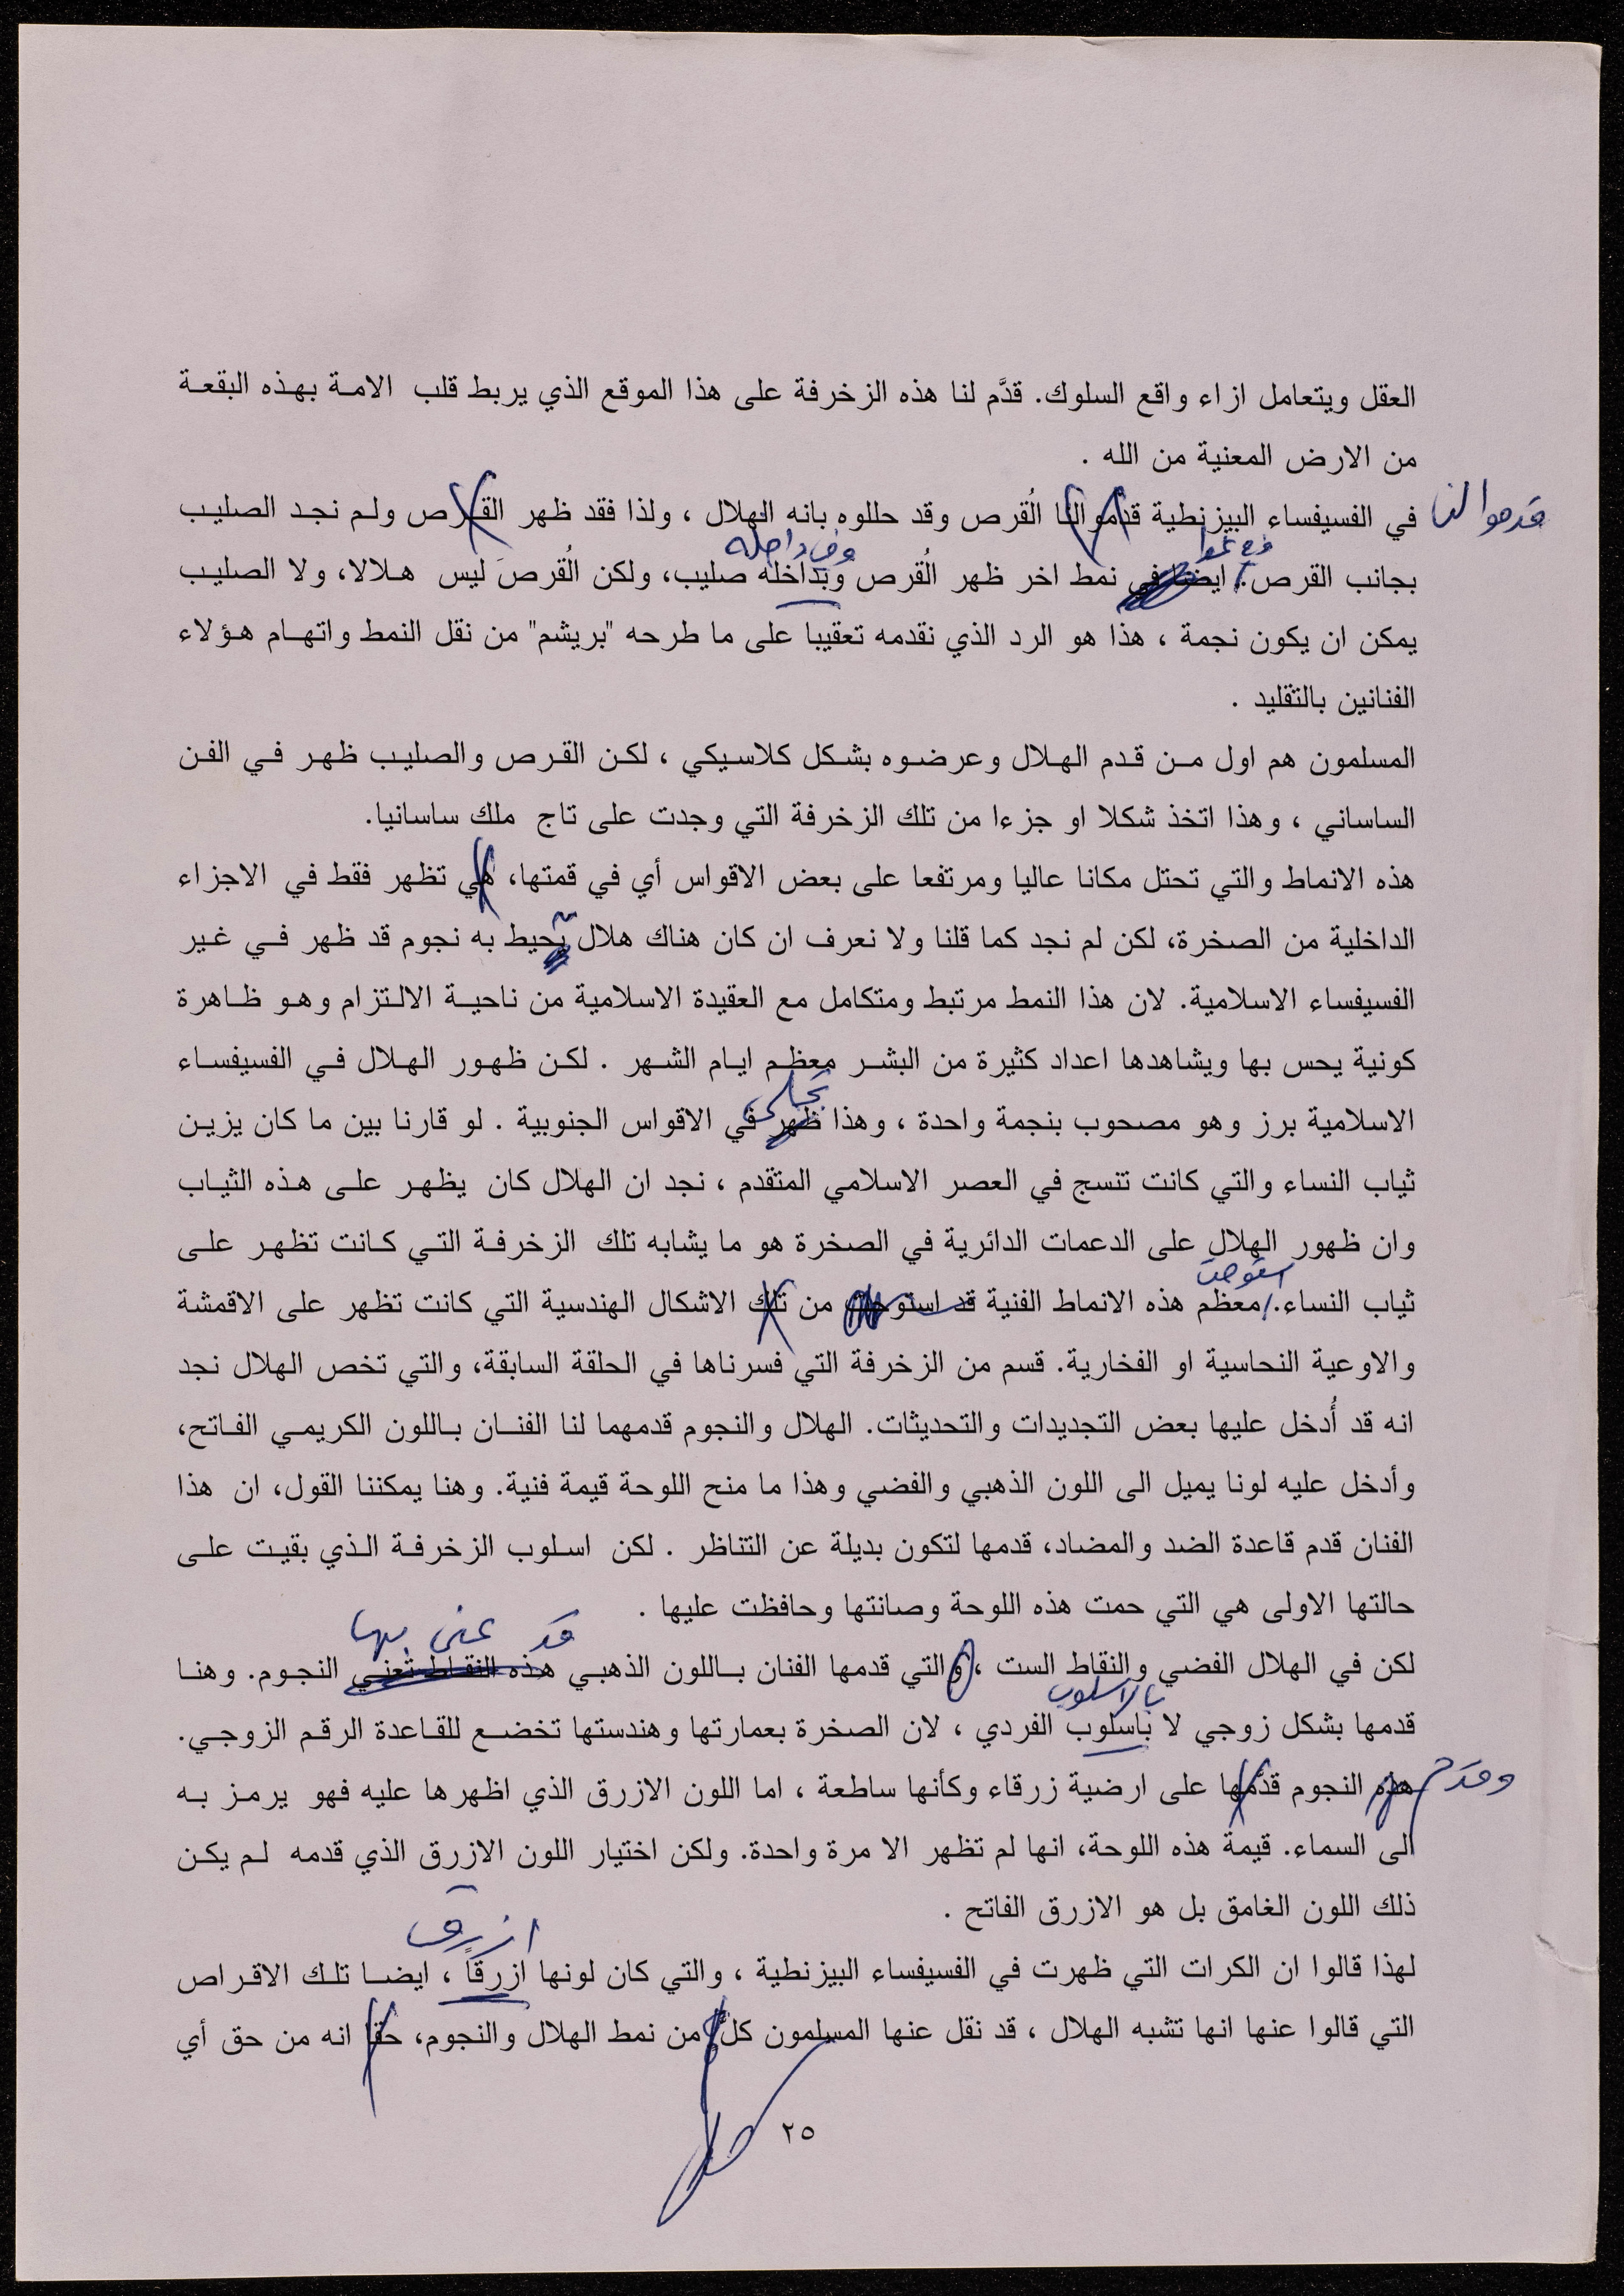 العقل ويتعامل ازاء واقع السلوك. قدَّم لنا هذه الزخرفة على هذا الموقع الذي يربط قلب الامة بهذه البقعة
من الارض المعنية من الله .
قدموا لنا
في الفسيفساء البيزنطية قدموا لنا القُرص وقد حللوه بانه الهلال ، ولذا فقد ظهر القرص ولم نجد الصليب
وفي داخله
بجانب القرص. ايضا في نمط اخر ظهر القُرص وبداخله صليب، ولكن القُرصَ ليس هلالا، ولا الصليب
يمكن ان يكون نجمة ، هذا هو الرد الذي نقدمه تعقيبا على ما طرحه "بريشم" من نقل النمط واتهام هؤلاء
الفنانين بالتقليد .
المسلمون هم اول من قدم الهلال وعرضوه بشكل كلاسيكي ، لكن القرص والصليب ظهر في الفن
الساساني ، وهذا اتخذ شكلا او جزءا من تلك الزخرفة التي وجدت على تاج ملك ساسانيا.
هذه الانماط والتي تحتل مكانا عاليا ومرتفعا على بعض الاقواس أي في قمتها، هي تظهر فقط في الاجزاء
الداخلية من الصخرة، لكن لم نجد كما قلنا ولا نعرف ان كان هناك هلال تحيط به نجوم قد ظهر في غير
الفسيفساء الاسلامية. لان هذا النمط مرتبط ومتكامل مع العقيدة الاسلامية من ناحية الالتزام وهو ظاهرة
كونية يحس بها ويشاهدها اعداد كثيرة من البشر معظم ايام الشهر . لكن ظهور الهلال في الفسيفساء
تجلى
الاسلامية برز وهو مصحوب بنجمة واحدة ، وهذا ظهر في الاقواس الجنوبية . لو قارنا بين ما كان يزين
ثياب النساء والتي كانت تنسج في العصر الاسلامي المتقدم ، نجد ان الهلال كان يظهر على هذه الثياب
وان ظهور الهلال على الدعمات الدائرية في الصخرة هو ما يشابه تلك الزخرفة التي كانت تظهر على
استوحت
ثياب النساء. معظم هذه الانماط الفنية قد استوحت من تلك الاشكال الهندسية التي كانت تظهر على الاقمشة
والاوعية النحاسية او الفخارية. قسم من الزخرفة التي فسرناها في الحلقة السابقة، والتي تخص الهلال نجد
انه قد أُدخل عليها بعض التجديدات والتحديثات. الهلال والنجوم قدمهما لنا الفنان باللون الكريمي الفاتح،
وأدخل عليه لونا يميل الى اللون الذهبي والفضي وهذا ما منح اللوحة قيمة فنية. وهنا يمكننا القول، ان هذا
الفنان قدم قاعدة الضد والمضاد، قدمها لتكون بديلة عن التناظر . لكن اسلوب الزخرفة الذي بقيت على
حالتها الاولى هي التي حمت هذه اللوحة وصانتها وحافظت عليها .
قد عنى بها
لكن في الهلال الفضي والنقاط الست ، والتي قدمها الفنان باللون الذهبي هذه النقاط تعني النجوم. وهنا
بالاسلوب
قدمها بشكل زوجي لا باسلوب الفردي ، لان الصخرة بعمارتها وهندستها تخضع للقاعدة الرقم الزوجي.
وقدم
هذه النجوم قدَّمها على ارضية زرقاء وكأنها ساطعة ، اما اللون الازرق الذي اظهرها عليه فهو يرمز به
الى السماء. قيمة هذه اللوحة، انها لم تظهر الا مرة واحدة. ولكن اختيار اللون الازرق الذي قدمه لم يكن
ذلك اللون الغامق بل هو الازرق الفاتح .
ازرق
لهذا قالوا ان الكرات التي ظهرت في الفسيفساء البيزنطية ، والتي كان لونها ازرقاً ، ايضا تلك الاقراص
التي قالوا عنها انها تشبه الهلال ، قد نقل عنها المسلمون كلٌّ من نمط الهلال والنجوم، حقا انه من حق أي
٢٥